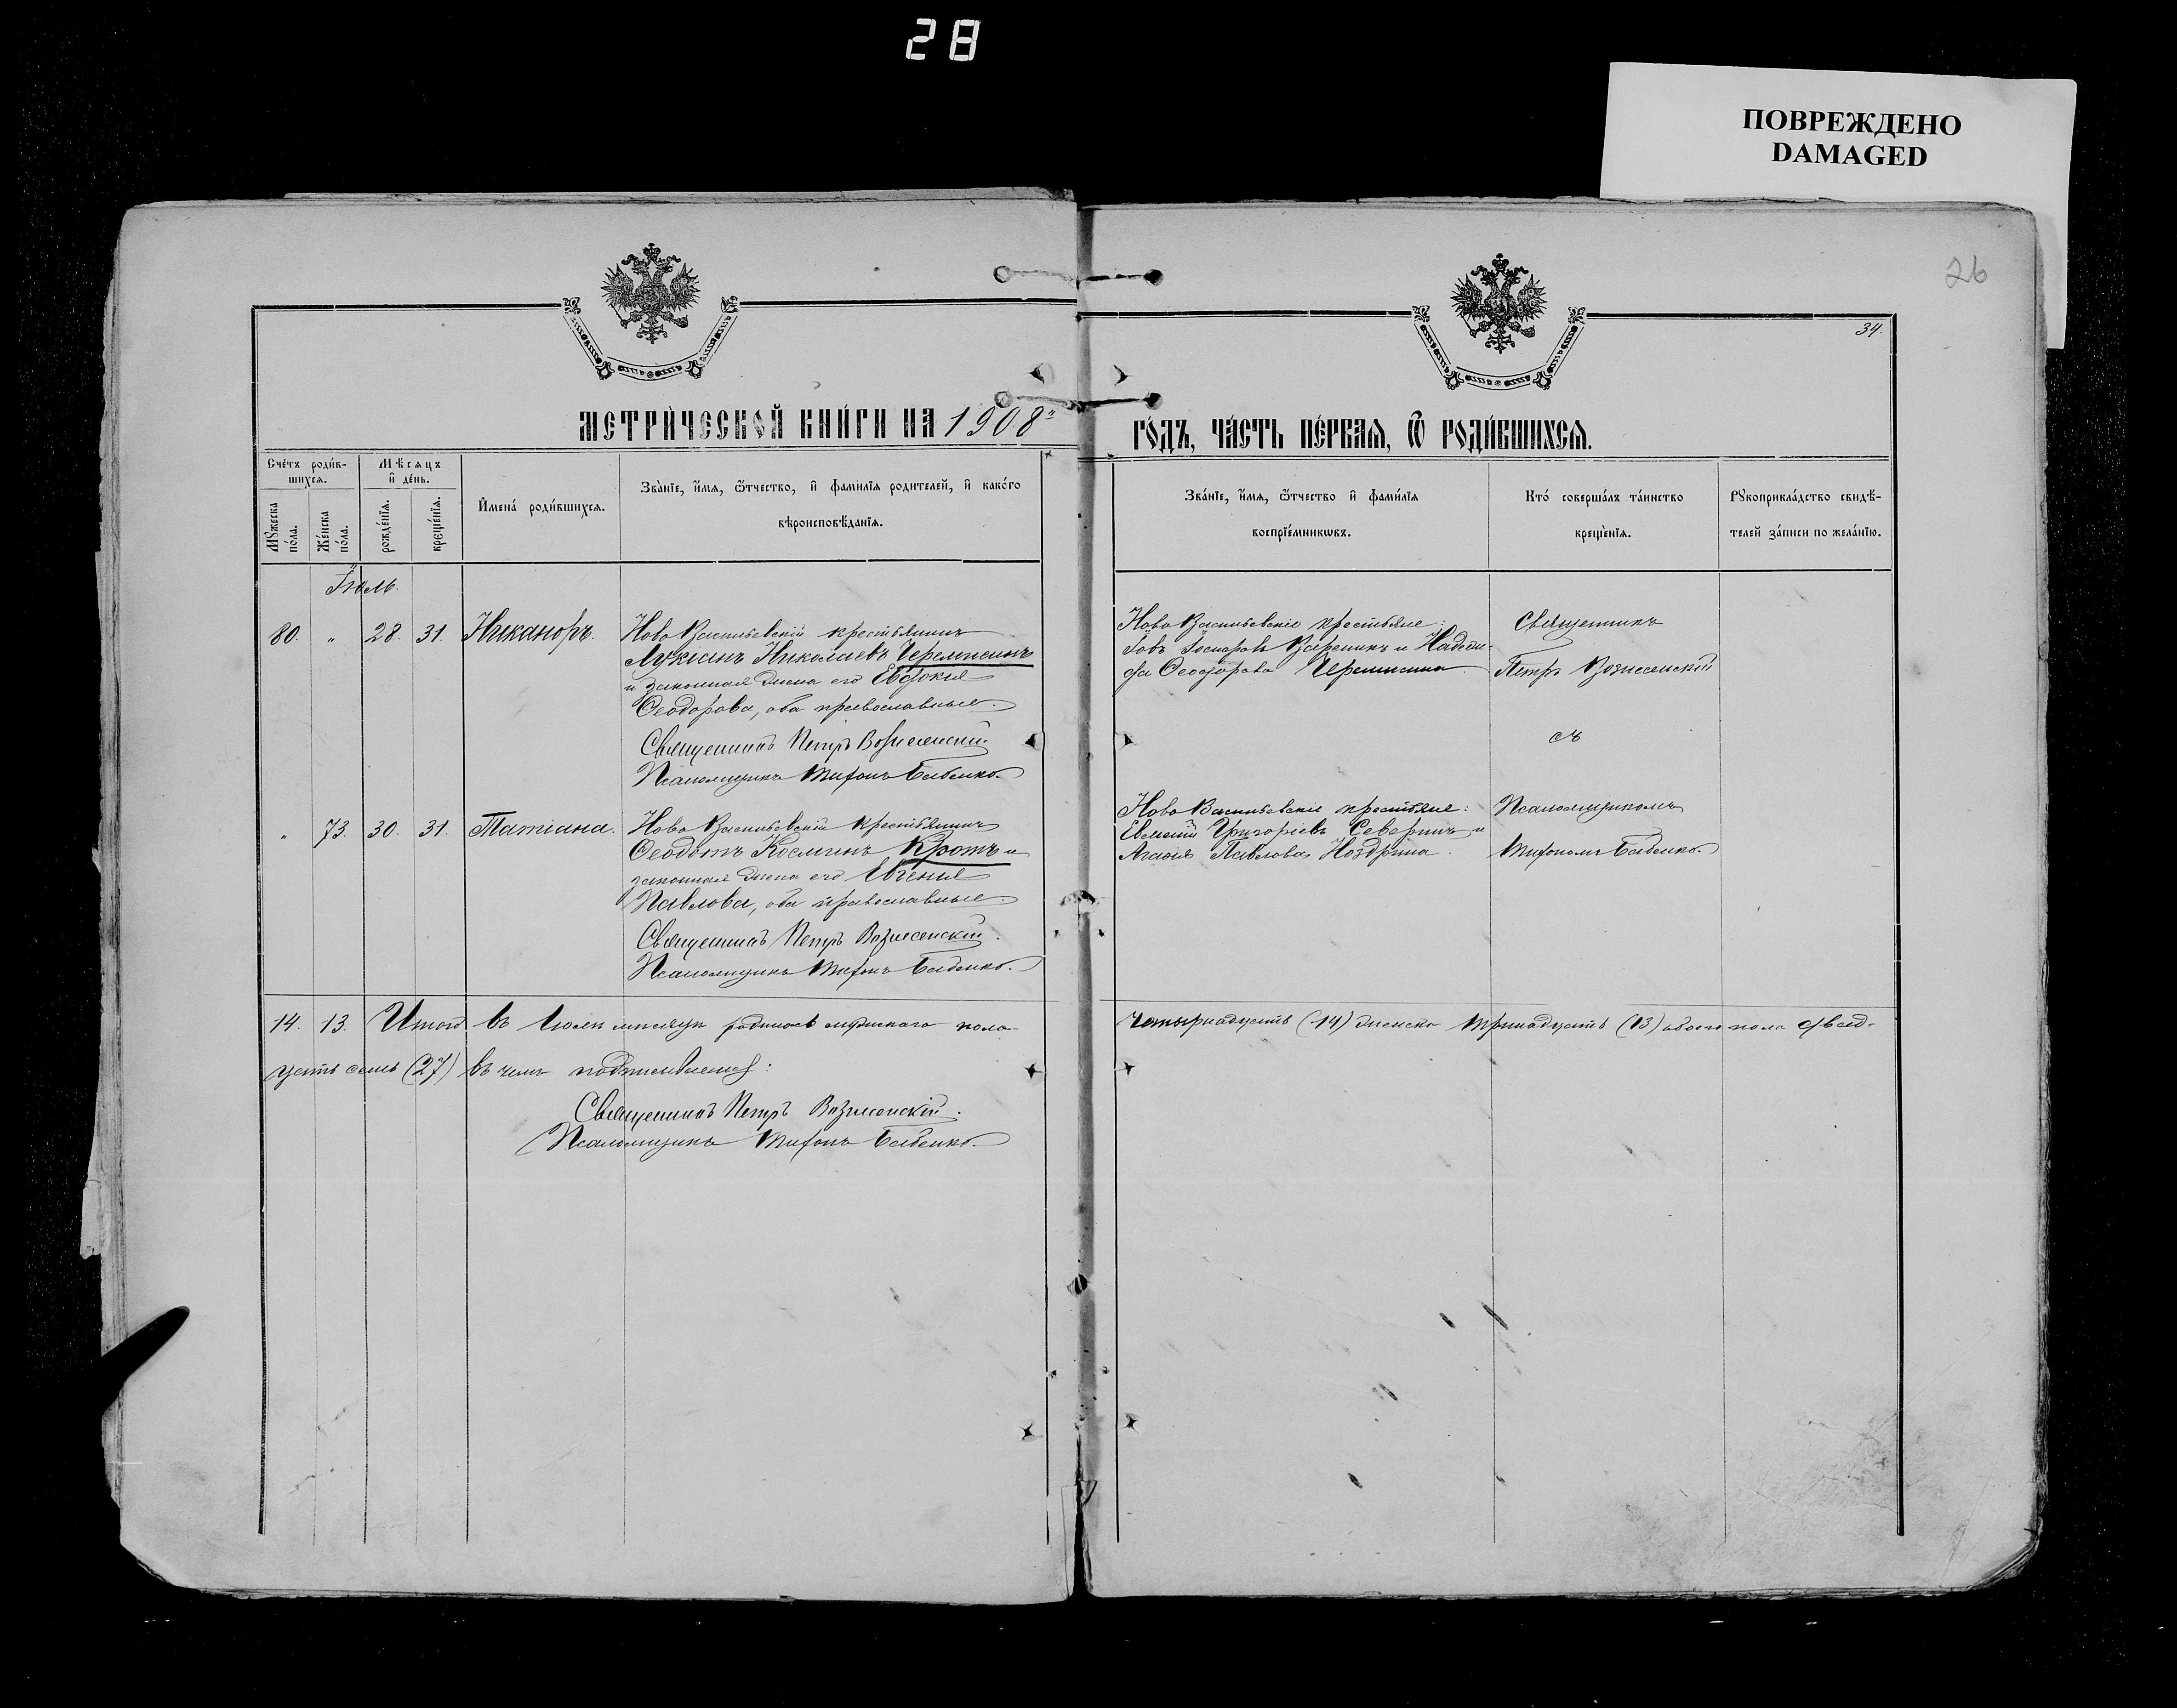 28
ПОВРЕЖДЕНО
DAMAGED
26
34.
МЕТРИ́ЧЕСКОЙ КНИ́ГИ НА 1908й
ГО́ДЪ, ЧА́СТЬ ПЕ́РВАЯ, Ѿ РОДИ́ВШИХСЯ.
Сче́тъ роди́в-
шихся.
Мꙋ́жеска
по́ла.
Же́нска
по́ла.
Мѣ́сяцъ
и҆ де́нь.
рожде́нїя.
креще́нїя.
И҆мена́ роди́вшихся.
Зва́нїе, и҆́мя, ѻ҆́тчество, и҆ фами́лїя родителей, и҆ како́гѡ
вѣроисповѣ́данїя.
Зва́нїе, и҆́мя, ѻ҆́тчество и҆ фами́лїя
воспрїе́мникѡвъ.
Кто́ соверша́лъ та́инство
креще́нїя.
Рꙋкоприкла́дство свидѣ́-
телей за́писи по жела́нїю.
Іюль.
80. " 28. 31. Никаноръ.
Ново Васильевскій крестьянинъ
Лукіанъ Николаевъ Черемисинъ
и законная жена его Евдокія
Ѳеодорова, оба православные.
Священникъ Петръ Вознесенскій
Псаломщикъ Тихонъ Бабенко.
Ново Васильевскіе крестьяне:
Іовъ Вареникъ и Надеж-
да Ѳеодорова Черемисина.
Священникъ
Петръ Вознесенскій
съ
" 73. 30. 31. Татіана.
Ново Васильевскій крестьянинъ
Ѳеодотъ Косминъ Кротъ и
законная жена его Евгенія
Павлова, оба православные.
Священникъ Петръ Вознесенскій.
Псаломщикъ Тихонъ Бабенко.
Ново Васильевскіе крестьяне:
Григоріевъ Северинъ и
Агафія Павлова Ноздрина.
Псаломщикомъ
Тихономъ Бабенко.
14. 13. Итого въ Іюлѣ мѣсяцѣ родилось мужскаго пола
четырнадцать (14) женска тринадцать (13) обоего пола двад-
цать семь (27) въ чемъ подписываемся:
Священникъ Петръ Вознесенскій.
Псаломщикъ Тихонъ Бабенко.